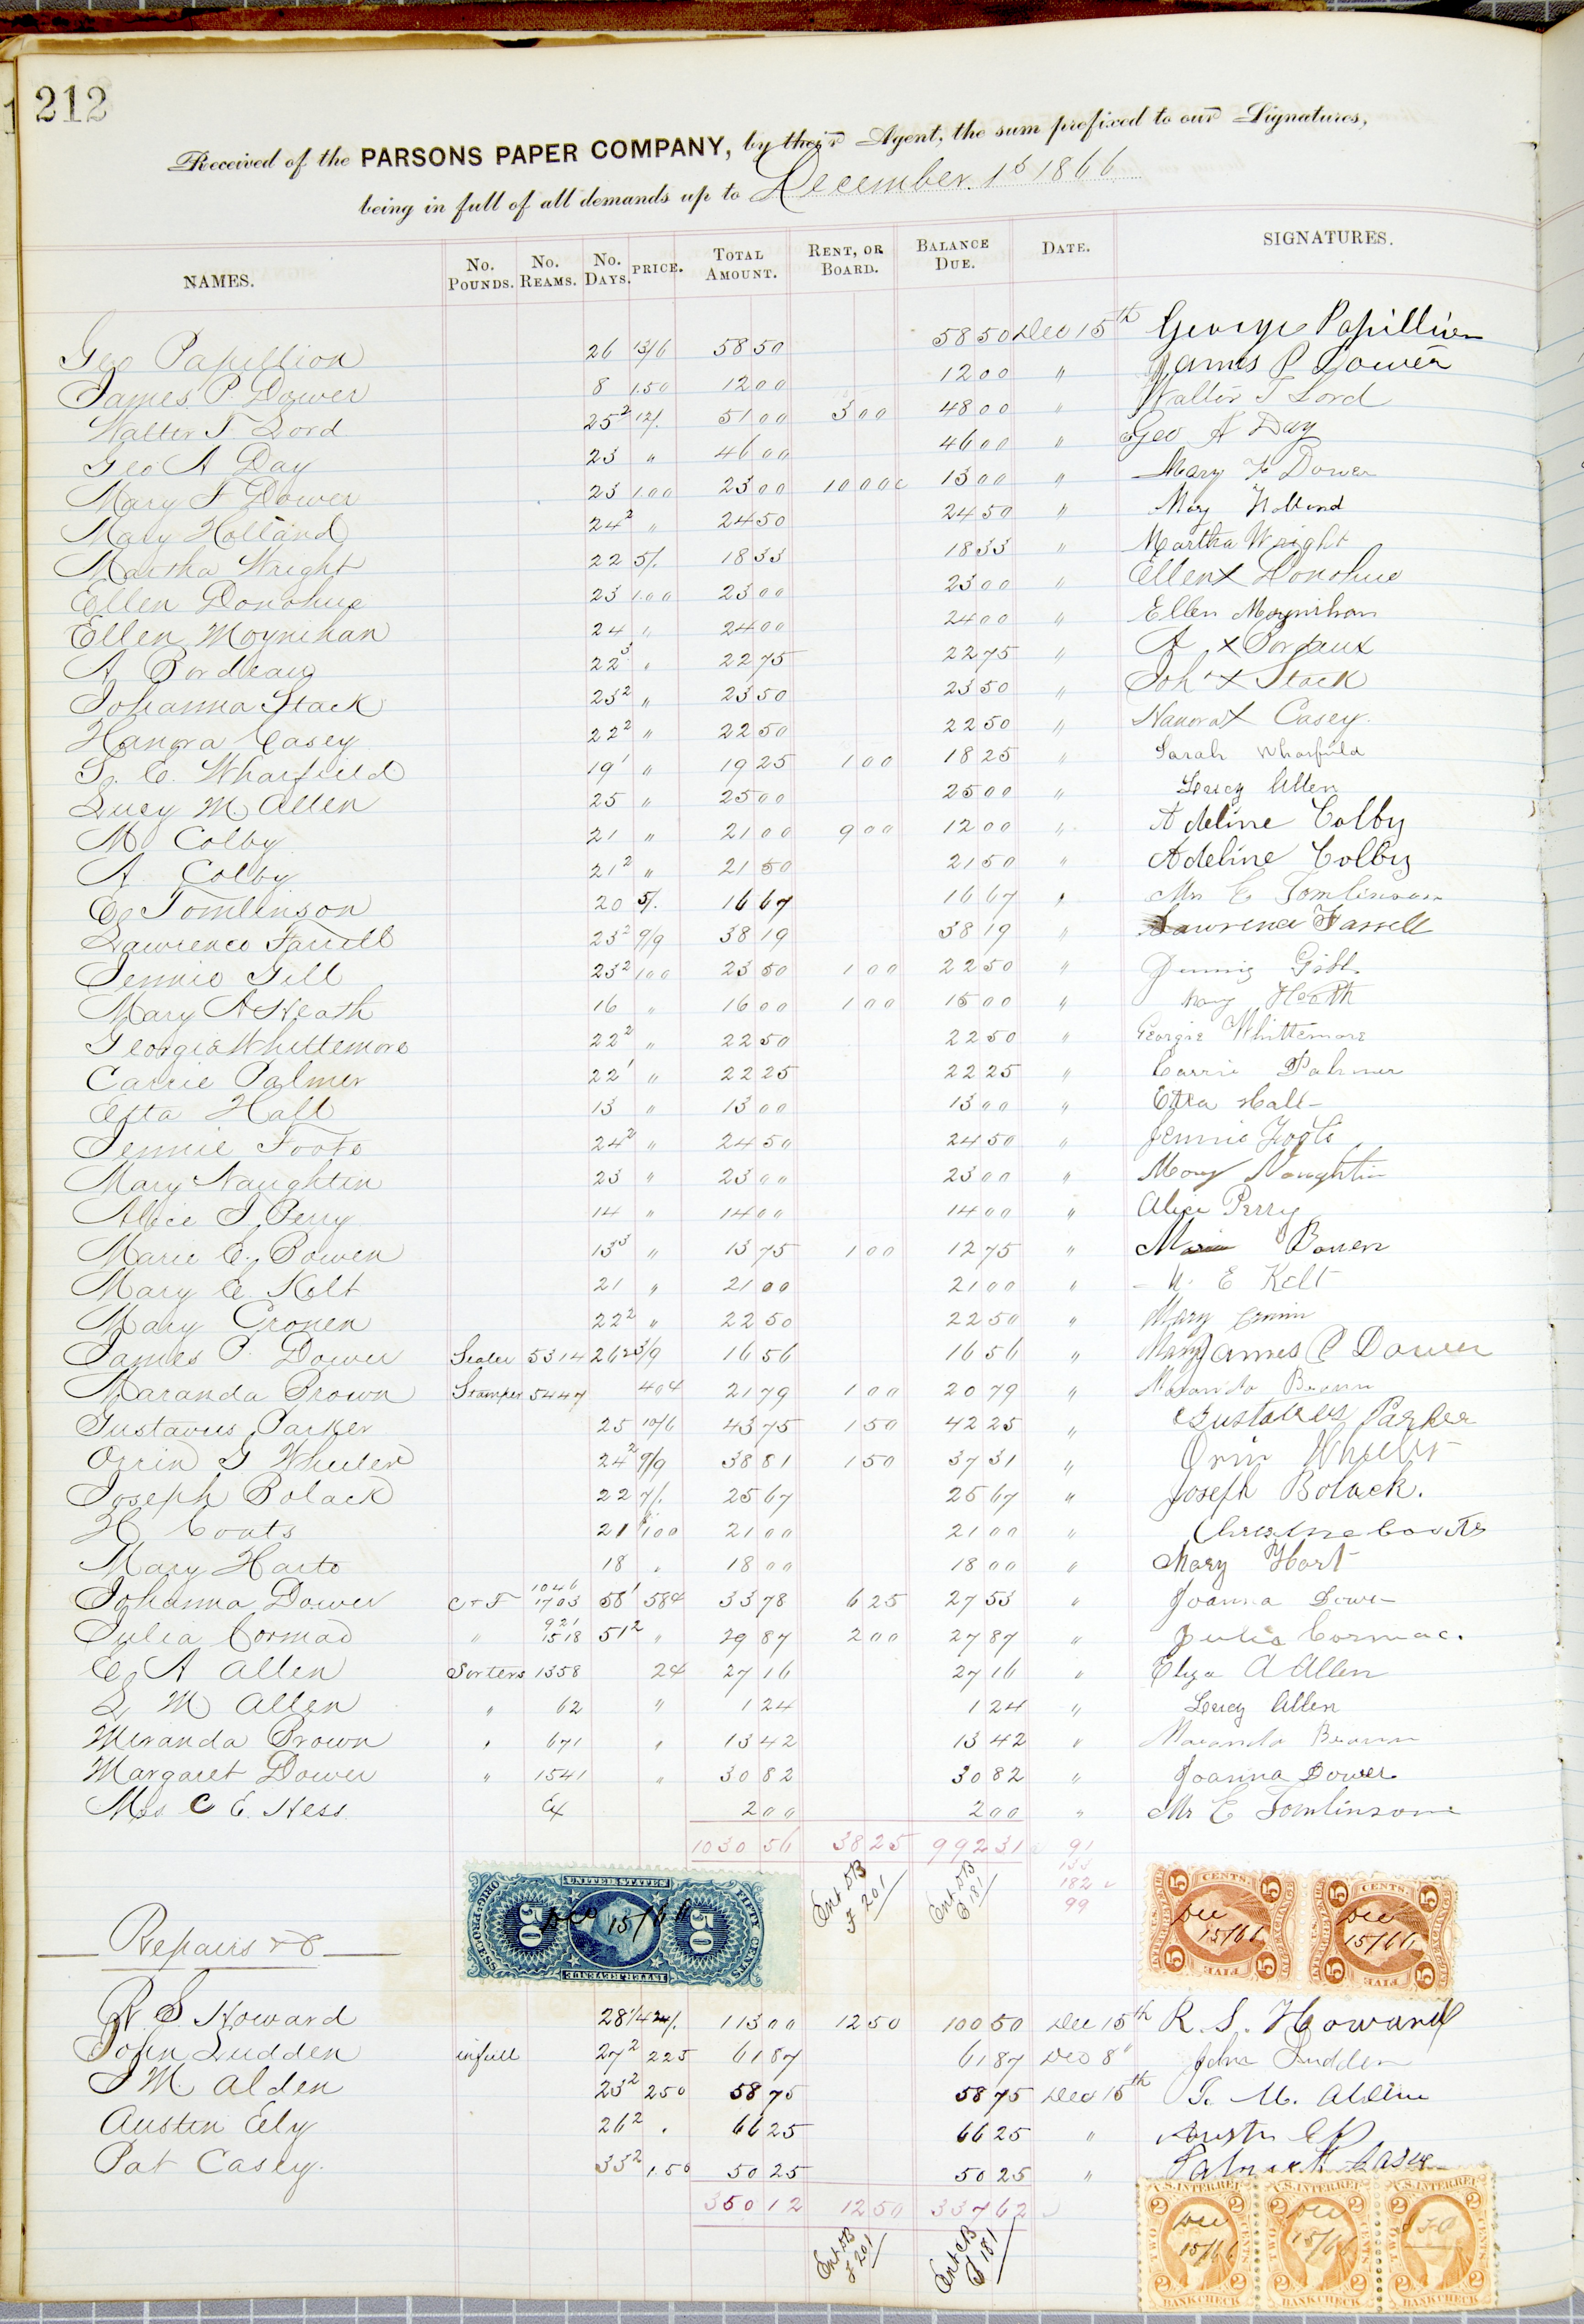 212
Received of the PARSONS PAPER COMPANY, by their Agent, the sum prefixed to our Signatures,
being in full of all demands up to December. 1st 1866
NAMES. No. POUNDS. No. REAMS. No. DAYS. PRICE. TOTAL AMOUNT. RENT, OR BOARD. BALANCE DUE. DATE. SIGNATURES.
Geo Papillion 26 13/6 58 50 58 50 Dec 15th George Papillion
James P. Dower 8 1.50 12 00 12 00 " James P Dower
Walter T Lord 25² 12/. 51 00 3 00 48 00 " Walter T Lord
Geo A Day 23 " 46 00 46 00 " Geo A Day
Mary F Dower 23 1 00 23 00 10 00 13 00 " Mary F Dower
Mary Holland 24² " 24 50 24 50 " Mary Holland
Martha Wright 22 5/. 18 33 18 33 " Martha Wright
Ellen Donohue 23 1.00 23 00 23 00 " Ellen X Donohue
Ellen Moynihan 24 " 24 00 24 00 " Ellen Moynihan
A Bordeau 22³ " 22 75 22 75 " A X Bordaux
Johanna Stack 23² " 23 50 23 50 " Joh' X Stack
Hanora Casey 22² " 22 50 22 50 " Hanora X Casey.
S. E. Wharfield 19¹ " 19 25 1 00 18 25 " Sarah Wharfield
Lucy M. Allen 25 " 25 00 25 00 " Lucy Allen
M Colby 21 " 21 00 9 00 12 00 " Adeline Colby
A Colby 21² " 21 50 21 50 " Adeline Colby
E Tomlinson 20 5/. 16 67 16 67 " Mrs E Tomlinson
Lawrence Farrell 23² 9/9 38 19 38 19 " Lawrence Farrell
Jennie Gill 23² 1 00 23 50 1 00 22 50 " Jennie Gill
Mary A Heath 16 " 16 00 1 00 15 00 " Mary Heath
Georgia Whittemore 22² " 22 50 22 50 " Georgie Whittemore
Carrie Palmer 22¹ " 22 25 22 25 " Carrie Palmer
Etta Hall 13 " 13 00 13 00 " Etta Hall
Jennie Foote 24² " 24 50 24 50 " Jennie Foote
Mary Naughtin 23 " 23 00 23 00 " Mary Naughtin
Alice J Perry 14 " 14 00 14 00 " Alice Perry
Marie E. Bowen 13³ " 13 75 1 00 12 75 " Marie Bowen
Mary E Kelt 21 " 21 00 21 00 " M. E Kelt
Mary Cronen 22² " 22 50 22 50 " Mary Cronin
James P. Dower Sealer 5314 26 16 56 16 56 " Mary James P Dower
Maranda Brown Stamper 5447 40¢ 21 79 1 00 20 79 " Maranda Brown
Gustavus Parker 25 10/6 43 75 1 50 42 25 " Gustavus Parker
Orrin G Wheeler 24² 9/9 38 81 1 50 37 31 " Orrin Wheeler
Joseph Polack 22 7/. 25 67 25 67 " Joseph Bolack.
H Coats 21 1 00 21 00 21 00 " Christine Coats
Mary Harte 18 " 18 00 18 00 " Mary Hart
Johanna Dower C & F 1046 1703 58¹ 58¢ 33 78 6 25 27 53 " Joanna Dower
Julia Cormac " 921 1518 51² " 29 87 2 00 27 87 " Julia Cormac.
E A Allen Sorters 1358 2¢ 27 16 27 16 " Eliza A Allen
L M Allen " 62 " 1 24 1 24 " Lucy Allen
Miranda Brown " 671 " 13 42 13 42 " Maranda Brown
Margaret Dower " 1541 " 30 82 30 82 " Joanna Dower
Mrs C E. Hess. Ex 2 00 2 00 " Mr E Tomlinson
1030 56 38 25 992 31 91
133
182
99
Ent DB F 201
Ent CB F 181
UNITED STATES
ORIG. PROCESS FIFTY CENTS
50 50
INTER. REVENUE
Dec 15/66
5 CENTS. 5
Dec 15/66
FIVE
5 CENTS. 5
Dec 15/66
FIVE
Repairs &c
R. S. Howard 28¼ 24/. 113 00 12 50 100 50 Dec 15th R. S. Howard
John Ludden in full 27² 2 25 61 87 61 87 Dec 8" John Ludden
J M. Alden 23² 2 50 58 75 58 75 Dec 15th J. M. Alden
Austin Ely 26² " 66 25 66 25 " Austin Ely
Pat Casey. 33² 1.50 50 25 50 25 " Patrick Casey
350 12 12 50 337 62
Ent DB F 201
Ent CB F 181
U.S. INTER. REV. U.S. INTER. REV. U.S. INTER. REV.
2 2 2 2 2 2
TWO CENTS TWO CENTS TWO CENTS
Dec 15/66 Dec 15/66
BANK CHECK BANK CHECK BANK CHECK